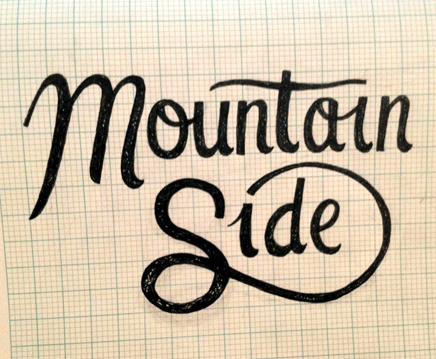 Mountain
Side